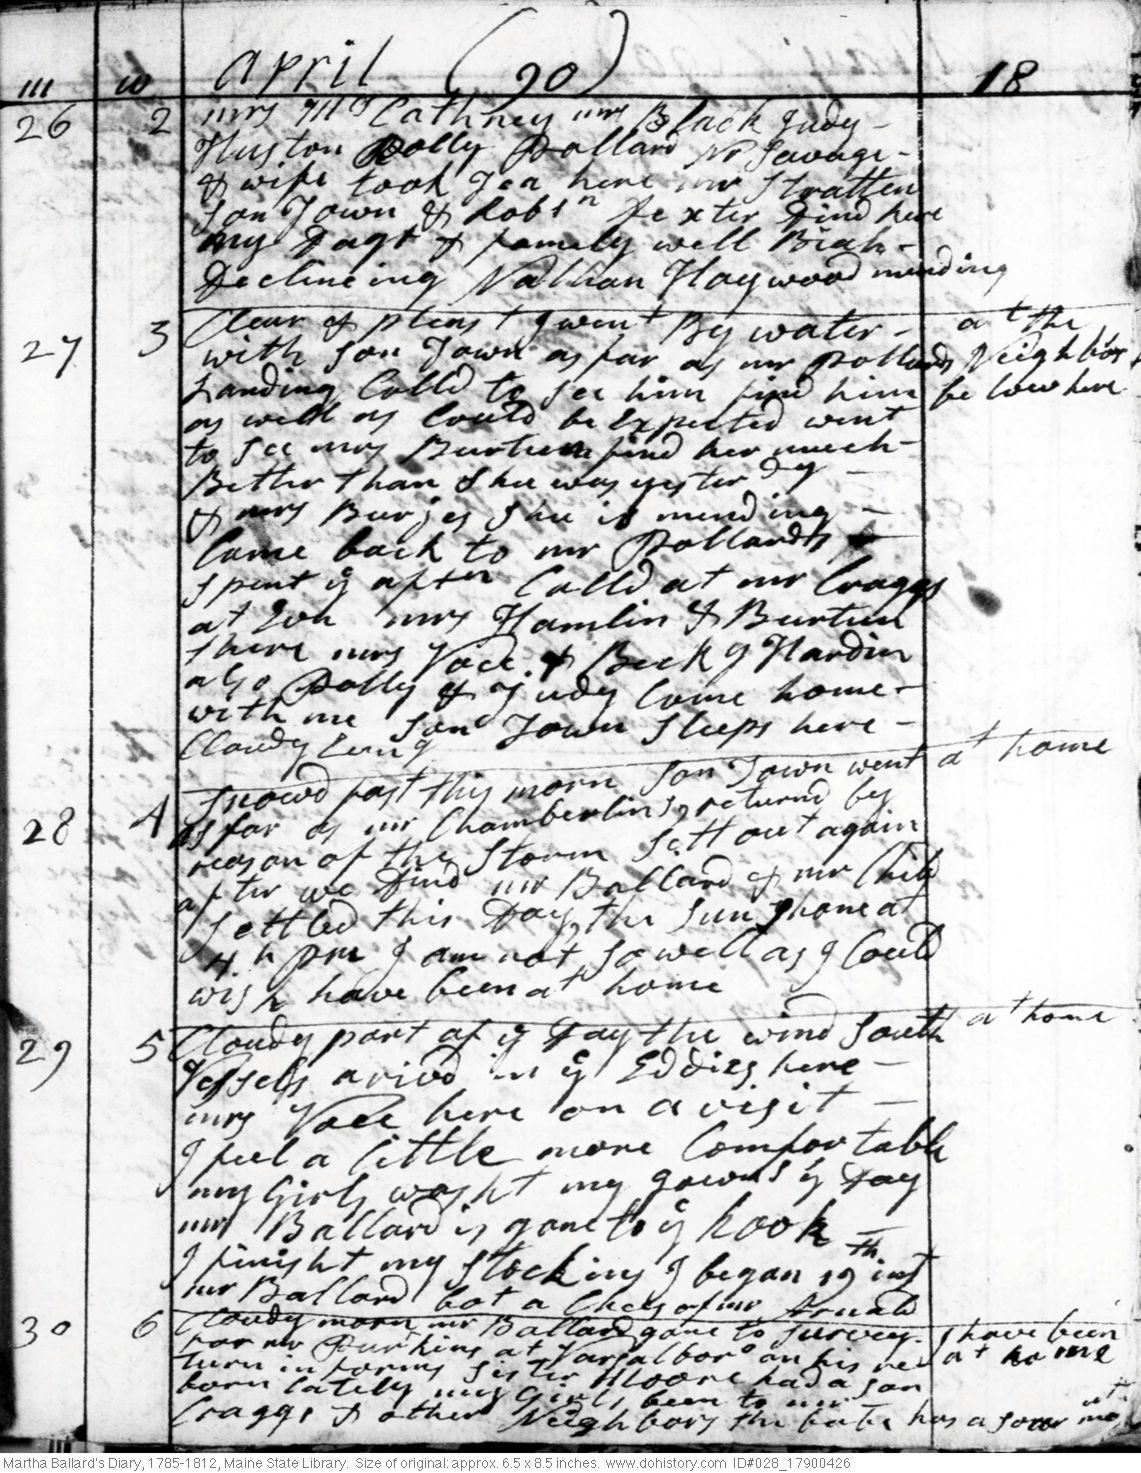 III IV April (90) 18
26 2 mrs McCathney mrs Black Judy
Huston Polly Pollard Mr Savage
& wife took Tea here mr Stratten
son Town & Robsn Dexter Dind here
my Dagt & famely well
Declineing Nathan Haywood mending
27 3 Clear & pleast I went By water at the
with son Town as far as mr Pollards Neighbors
Landing Calld to see him find him be low here
as well as Could be Expected went
to see mrs Burtun find her much
Better than Shee was yesterdy
& mrs Burges Shee is mending
Came back to mr Pollards
spent ye aftn Calld at mr Craggs
at Evn mrs Hamlin & Burtun
there mrs Voce & Beck y Hardin
also Polly & Judy Come home
with me son Town Sleeps here
Cloudy Eevng
28 4 Snowd fast this morn son Town went at home
as far as mr Chamberlins, returnd by
reason of the Storm Sett out again
after we dind mr Ballard & mr Child
settled this Day, the sun shone at
4 h pm I am not so well as I Could
wish have been at home
29 5 Cloudy part of ye Day the wind South at home
Vessels arivd in ye Eddies here
mrs Voce here on a visit
I feel a little more Comfortable
my Girls washt my gowns ye Day
mr Ballard is gone to ye hook
I finisht my Stockins I began 19th inst
mr Ballard bot a Chees of mr Arnald
30 6 Cloudy morn mr Ballard gone to survey I have been
for mr Purkins at Varsalboro on his re at home
turn in forms Sister Moore had a son
born lately my Girls been to mr
Craggs & other Neighbors the babe has a sore
Martha Ballard's Diary, 1785-1812, Maine State Library. Size of original: approx. 6.5 x 8.5 inches. www.dohistory.com ID#028_17900426